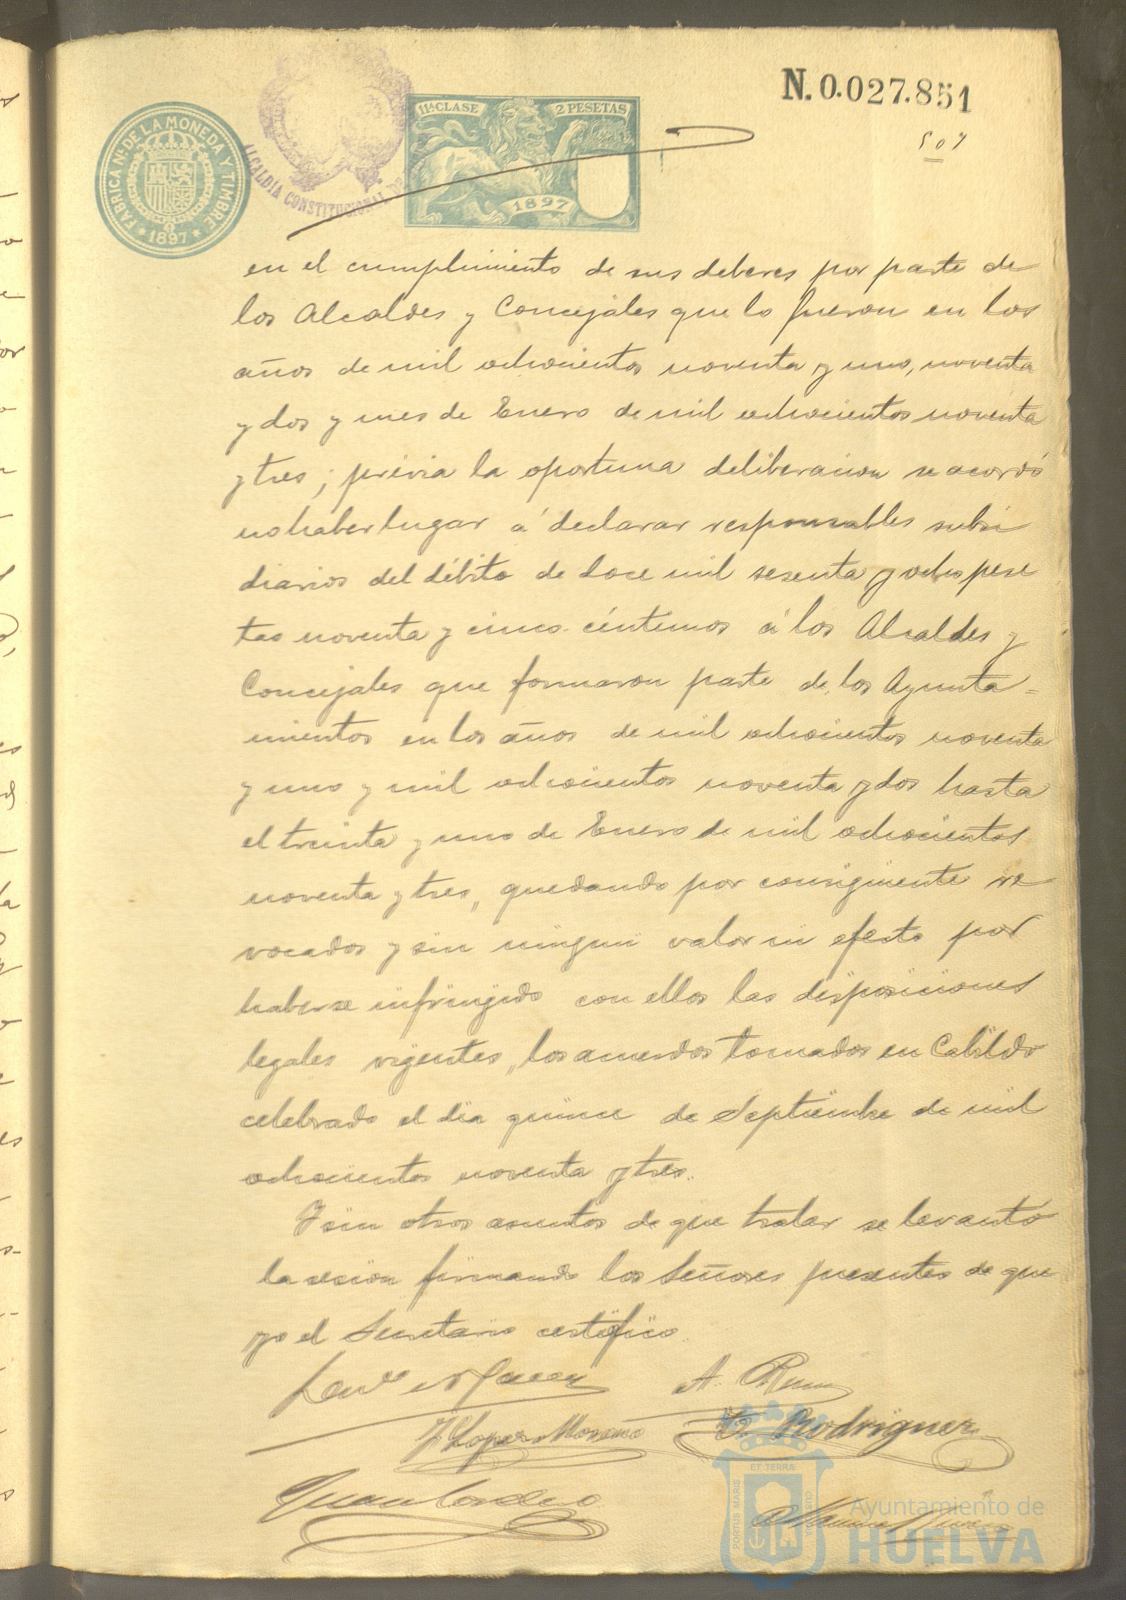 N. 0.027.851
507
FABRICA Nl. DE LA MONEDA Y TIMBRE
* 1897 *
ALCALDIA CONSTITUCIONAL
11a CLASE 2 PESETAS
1897
en el cumplimiento de sus deberes por parte de
los Alcaldes y Concejales que lo fueron en los
años de mil ochocientos noventa y uno, noventa
y dos y mes de Enero de mil ochocientos noventa
y tres; previa la oportuna deliberacion se acordó
no haber lugar á declarar responsables subsi
diarios del débito de doce mil sesenta y ocho pese
tas noventa y cinco céntimos á los Alcaldes y
Concejales que formaron parte de los Ayunta=
mientos en los años de mil ochocientos noventa
y uno y mil ochocientos noventa y dos hasta
el treinta y uno de Enero de mil ochocientos
noventa y tres, quedando por consiguiente re
vocados y sin ningun valor ni efecto por
haberse infringido con ellos las disposiciones
legales vigentes, los acuerdos tomados en Cabildo
celebrado el dia quince de Septiembre de mil
ochocientos noventa y tres.
Y sin otros asuntos de que tratar se levantó
la sesion firmando los Señores presentes de que
yo el Secretario certifico.
A.
J Lopez Moreno Rodriguez
Juan Cordero
PORTUS MARIS ET TERRÆ CUSTODIA
Ayuntamiento de
HUELVA